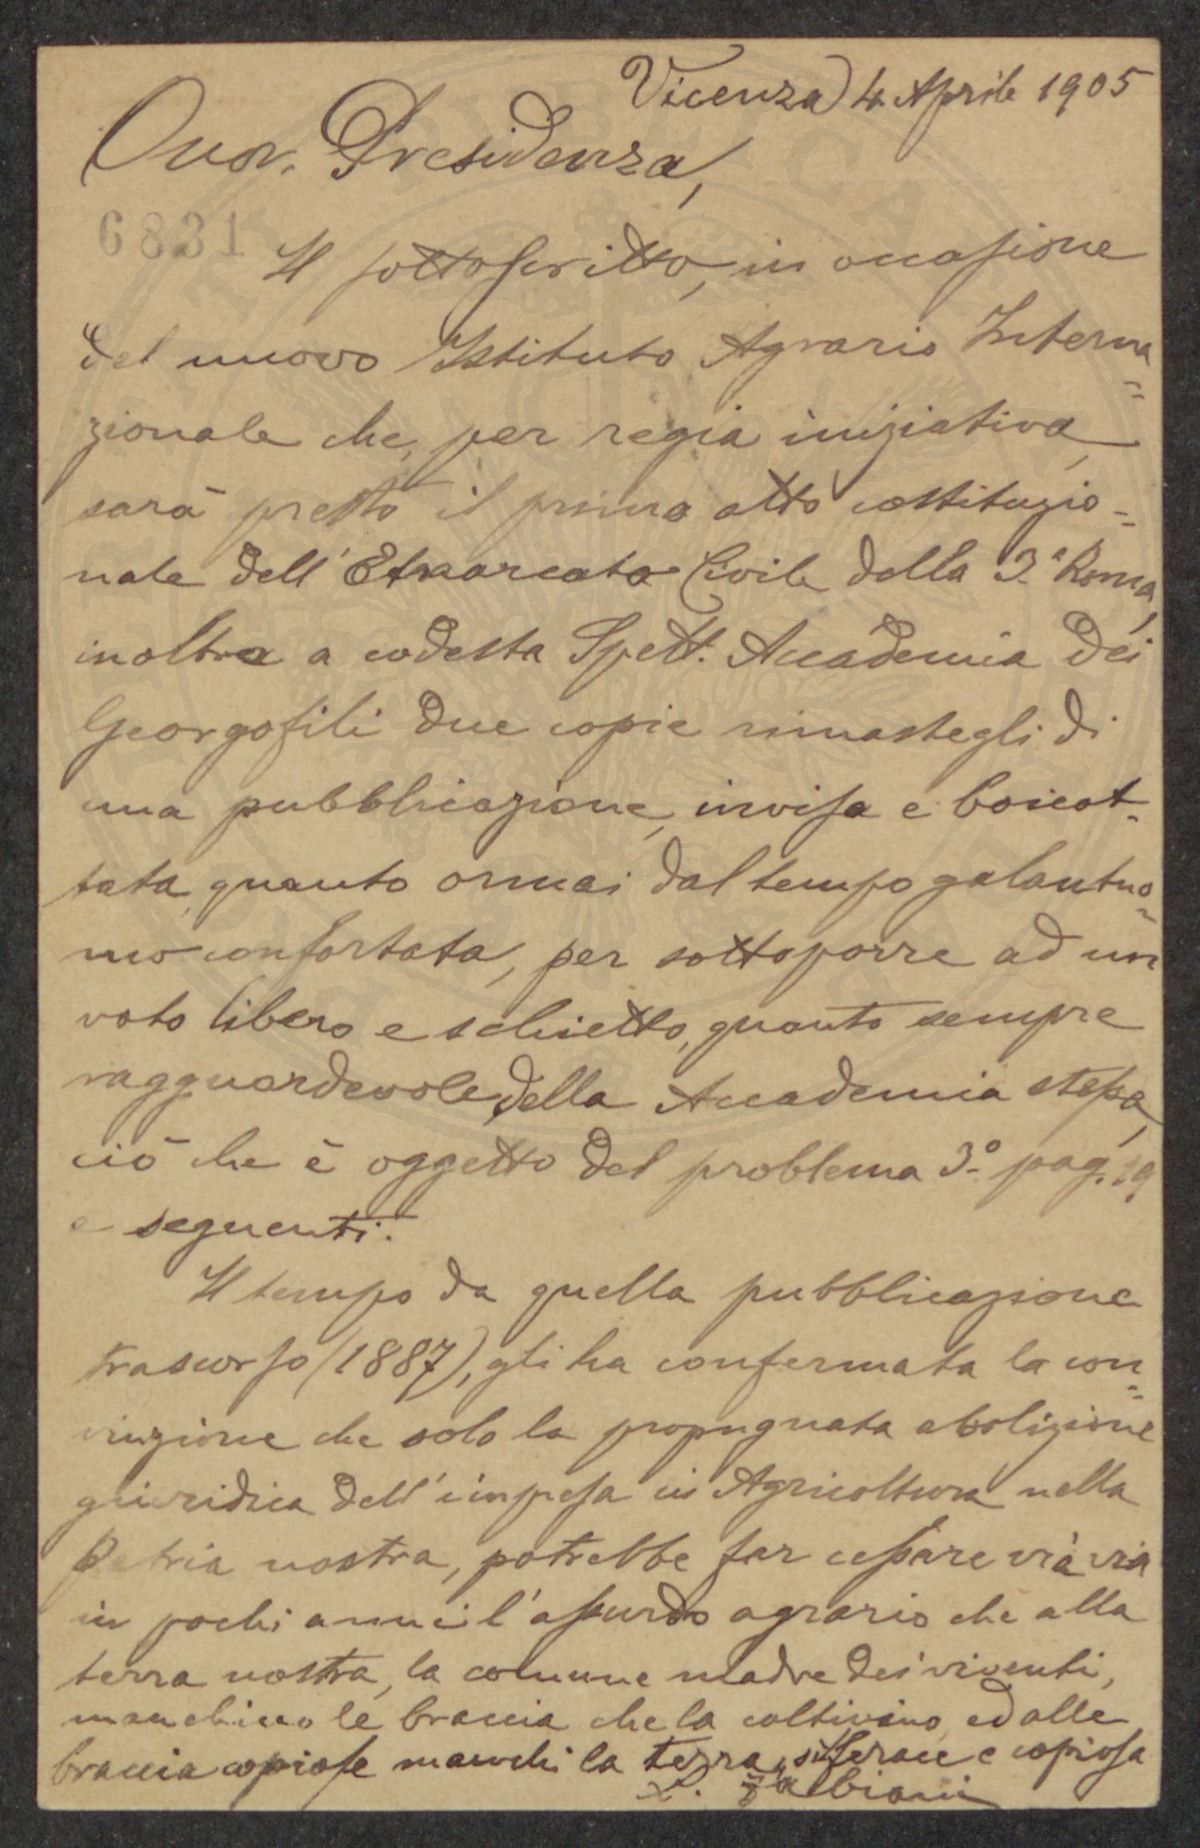 Vicenza 4 Aprile 1905
Onor. Presidenza,
6831
Il sottoscritto, in occasione
del nuovo Istituto Agrario Interna=
zionale che, per regia iniziativa,
sarà presto il primo atto costituzio=
nale dell' Etnarcato Civile della 3ª Roma,
inoltra a codesta Spett. Accademia dei
Georgofili due copie rimastegli di
una pubblicazione, invisa e boicot=
tata, quanto ormai dal tempo galantuo=
mo confortata, per sottoporre ad un
voto libero e schietto, quanto sempre
ragguardevole, della Accademia stessa,
ciò che è oggetto del problema 3º pag. 19
e seguenti.
Il tempo da quella pubblicazione
trascorso (1887), gli ha confermata la con=
vinzione che solo la propugnata abolizione
giuridica dell' impresa in Agricoltura nella
Patria nostra, potrebbe far cessare via via
in pochi anni l'assurdo agrario che alla
terra nostra, la comune madre dei viventi,
manchino le braccia che la coltivino, ed alle
braccia copiose manchi la terra, sì ferace e copiosa